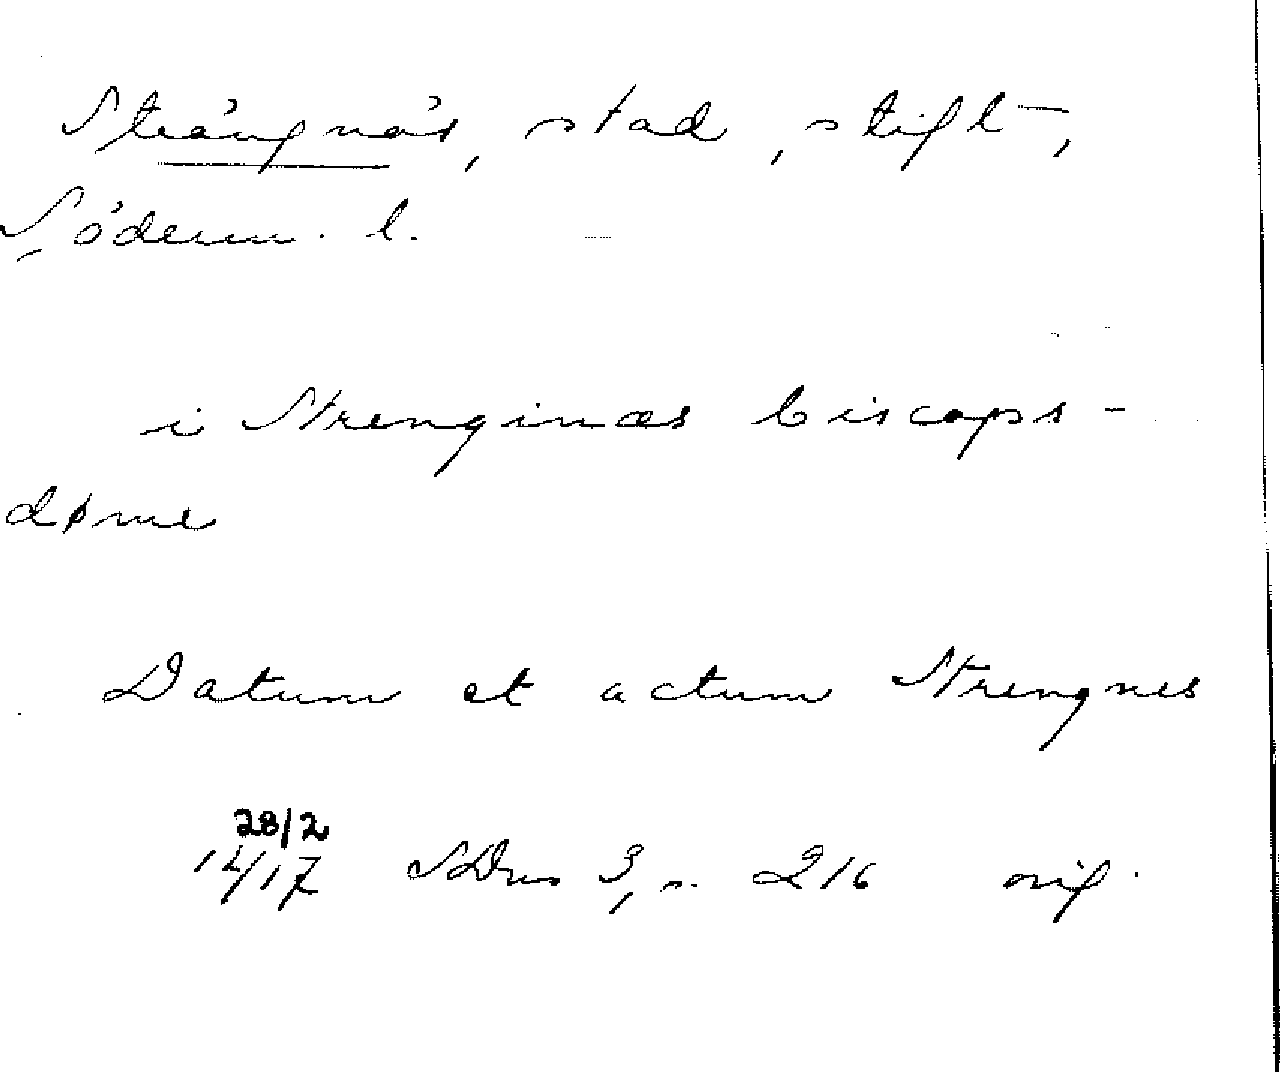 Strängnäs, stad, stift,
Söderm. l.
i Strenginæs biscops-
døme
Datum et actum Strengnes
28/2
14/17 SDns 3, s. 216 orig.